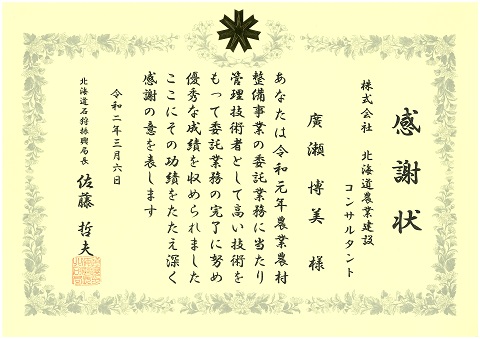 感謝状
株式会社 北海道農業建設
コンサルタント
廣瀬 博美 様
あなたは令和元年農業農村
整備事業の委託業務に当たり
管理技術者として高い技術を
もって委託業務の完了に努め
優秀な成績を収められました
ここにその功績をたたえ深く
感謝の意を表します
令和二年三月六日
北海道石狩振興局長 佐藤 哲夫